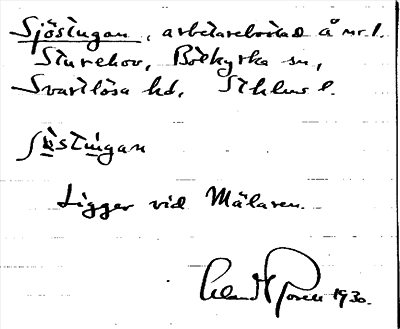 Sjöstugan, arbetarebostad å nr. 1.
Sturehov, Botkyrka sn,
Svartlösa hd, Sthlms l.
Ligger vid Mälaren.
1930.